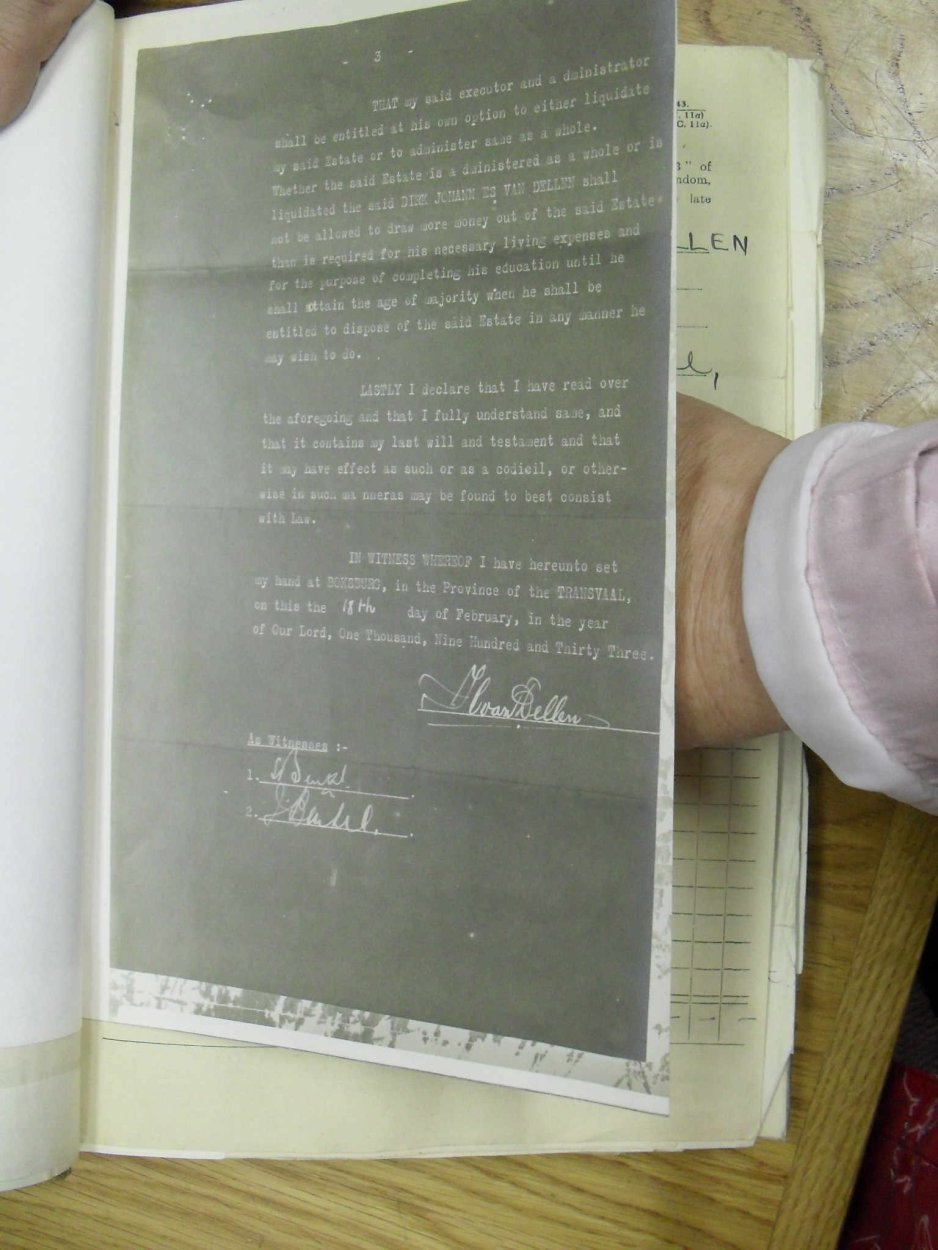 - 3 -
THAT my said executor and a dministrator
shall be entitled at his own option to either liquidate
my said Estate or to administer same as a whole.
Whether the said Estate is a dministered as a whole or is
liquidated the said DIRK JOHANN ES VAN DELLEN shall
not be allowed to draw more money out of the said Estate
than is required for his necessary living expenses and
for the purpose of completing his education until he
shall attain the age of majority when he shall be
entitled to dispose of the said Estate in any manner he
may wish to do.
LASTLY I declare that I have read over
the aforegoing and that I fully understand same, and
that it contains my last will and testament and that
it may have effect as such or as a codicil, or other-
wise in such ma nneras may be found to best consist
with Law.
IN WITNESS WHEREOF I have hereunto set
my hand at BOKSBURG, in the Province of the TRANSVAAL,
on this the 18th day of February, in the year
of Our Lord, One Thousand, Nine Hundred and Thirty Three.
van Dellen
As Witnesses :-
1.
2.
43.
11a)
C. 11a).
3" of
ndom,
late
LLEN